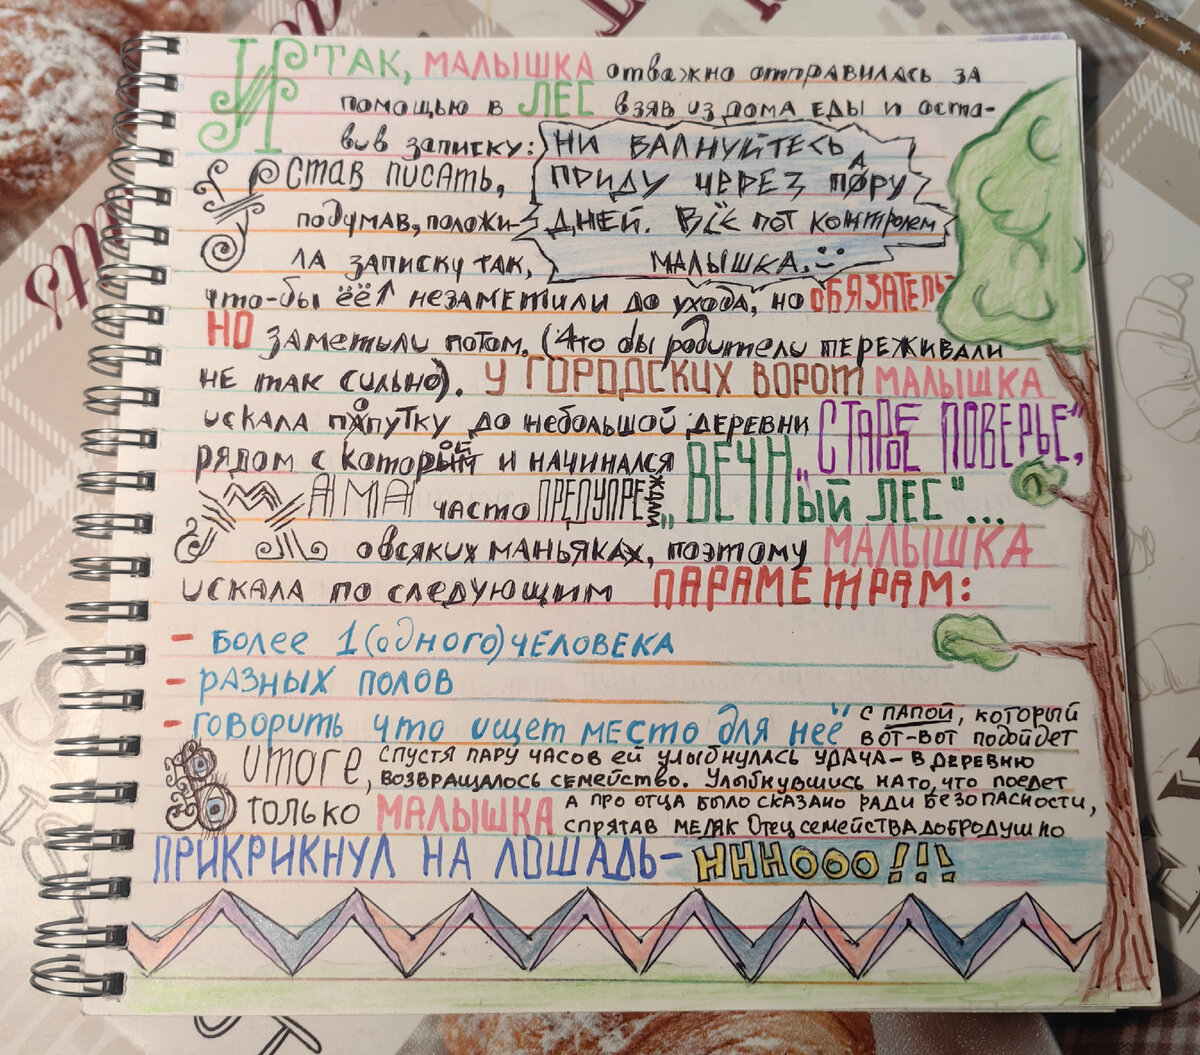 ИТАК, МАЛЫШКА отважно отправилась за
помощью в ЛЕС взяв из дома еды и оста-
вив записку: НИ ВАЛНУЙТЕСЬ
КСТАВ ПИСАТЬ, ПРИДУ ЧЕРЕЗ ПАРУ
подумав, положи- ДНЕЙ. ВСЁ ПОТ КОНТРОЛЕМ
ЛА ЗАПИСКУ ТАК, МАЛЫШКА.
что-бы её НЕЗАМЕТИЛИ ДО УХОДА, НО ОБЯЗАТЕЛЬ-
НО ЗАМЕТИЛИ ПОТОМ. (Что бы родители ПЕРЕЖИВАЛИ
НЕ ТАК СИЛЬНО). У ГОРОДСКИХ ВОРОТ МАЛЫШКА
ИСКАЛА ПОПУТКУ ДО НЕБОЛЬШОЙ ДЕРЕВНИ „СТАРОЕ ПОВЕРЬЕ",
РЯДОМ С КОТОРОЙ И НАЧИНАЛСЯ „ВЕЧНЫЙ ЛЕС"...
МАМА ЧАСТО ПРЕДУПРЕЖДАЛА
о всяких МАНЬЯКАХ, поэтому МАЛЫШКА
ИСКАЛА ПО СЛЕДУЮЩИМ ПАРАМЕТРАМ:
- БОЛЕЕ 1(одного) ЧЕЛОВЕКА
- РАЗНЫХ ПОЛОВ
- ГОВОРИТЬ ЧТО ИЩЕТ МЕСТО ДЛЯ НЕЁ С ПАПОЙ, КОТОРЫЙ
ВОТ-ВОТ ПОДОЙДЕТ
В ИТОГЕ, СПУСТЯ ПАРУ ЧАСОВ ЕЙ УЛЫБНУЛАСЬ УДАЧА – В ДЕРЕВНЮ
ВОЗВРАЩАЛОСЬ СЕМЕЙСТВО. УЛЫБНУВШИСЬ НА ТО, ЧТО ПОЕДЕТ
ТОЛЬКО МАЛЫШКА А ПРО ОТЦА БЫЛО СКАЗАНО РАДИ БЕЗОПАСНОСТИ,
СПРЯТАВ МЕДЯК ОТЕЦ СЕМЕЙСТВА ДОБРОДУШНО
ПРИКРИКНУЛ НА ЛОШАДЬ – НННОООО!!!